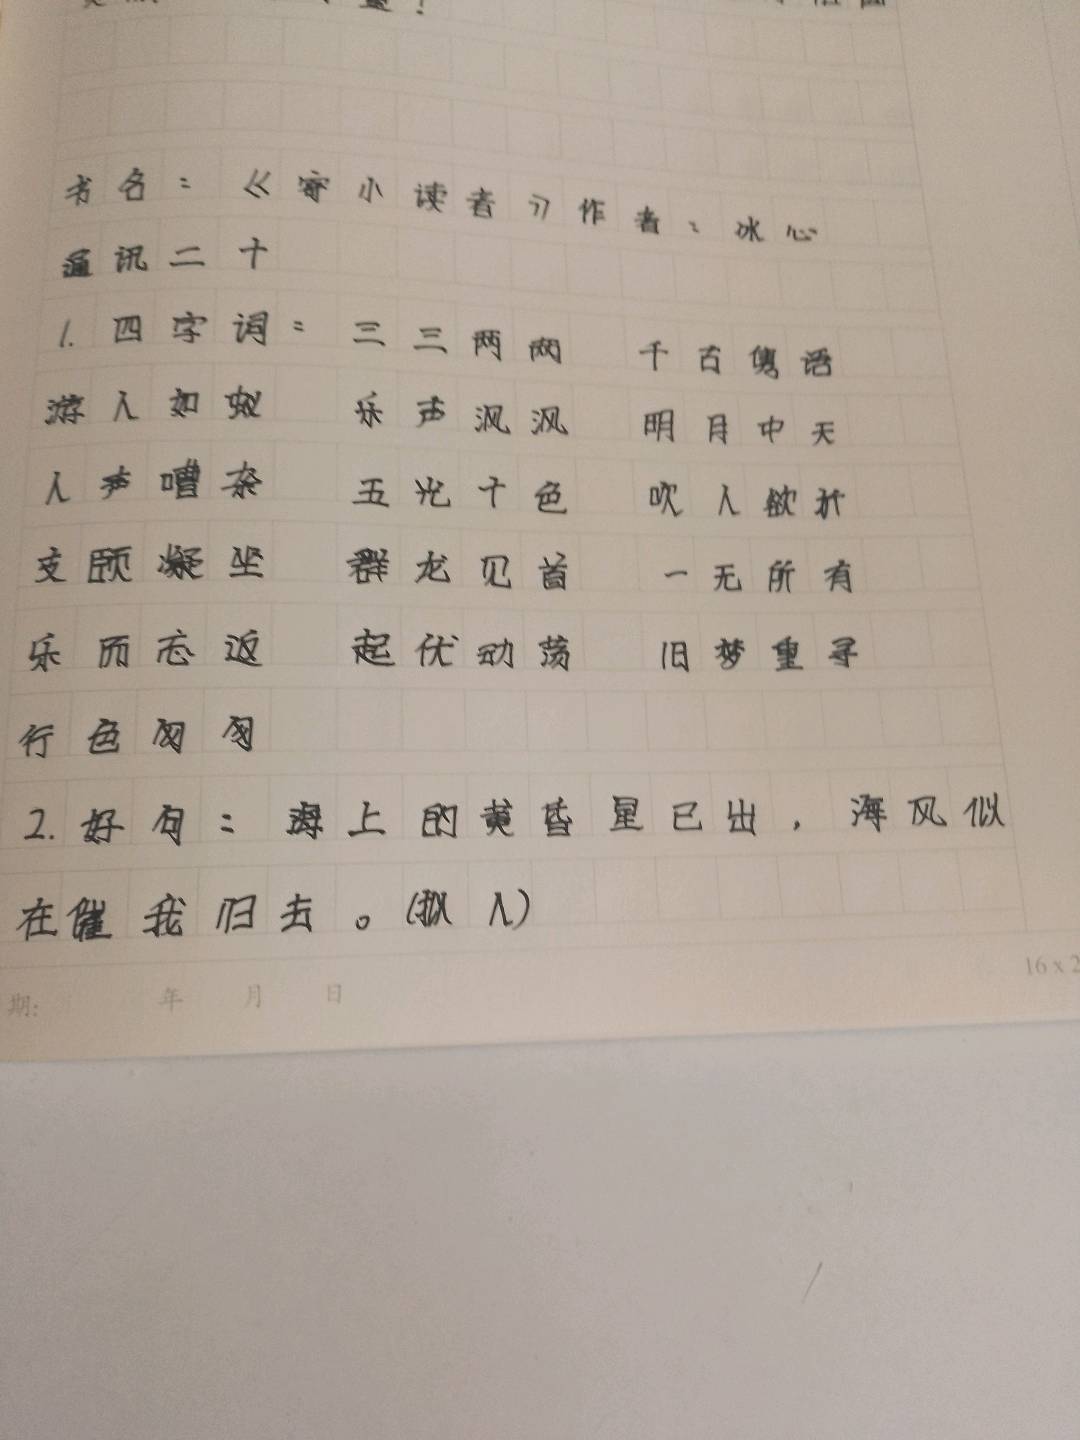 书名：《寄小读者》作者：冰心
通讯二十
1.四字词：三三两两 千古隽语
游人如蚁 乐声沨沨 明月中天
人声嘈杂 五光十色 吹人欲
支颐凝坐 群龙见首 一无所有
乐而忘返 起伏动荡 旧梦重寻
行色匆匆
2.好句：海上的黄昏星已出，海风似
在催我归去。(拟人)
期: 年 月 日
16x2